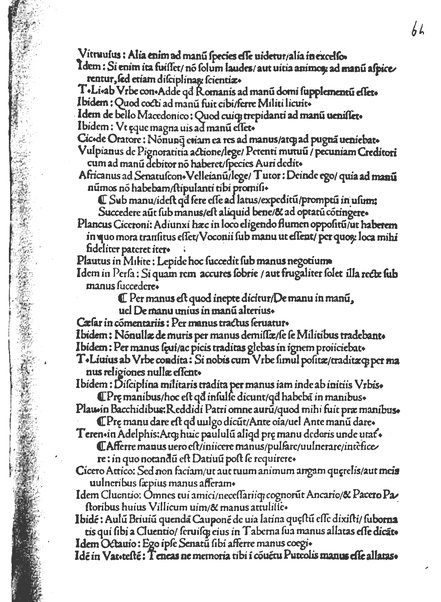 64
Vitruuius: Alia enim ad manũ species esse uidetur/alia in excelso.
Idem: Si enim ita fuisset/ nõ solum laudes/aut uitia animoꝝ ad manũ aspice
rentur, sed etiam disciplinaꝝ scientiæ.
T. Li. ab Vrbe con. Adde qđ Romanis ad manũ domi supplementũ esset.
Ibidem: Quod cocti ad manũ fuit cibi/ferre Militi licuit.
Idem de bello Macedonico: Quod cuiꝗ trepidanti ad manũ uenisset.
Ibidem: Vt eque magna uis ad manũ esset.
Cic. de Oratore: Nõnunꝗ etiam ea res ad manus/atqꝫ ad pugnã ueniebat.
Vulpianus de Pignoratitia actione/lege/ Petenti mutuũ / pecuniam Creditori
cum ad manũ debitor nõ haberet/species Auri dedit.
Africanus ad Senatuscon. Velleianũ/lege/ Tutor: Deinde ego/ quia ad manũ
nũmos nõ habebam/stipulanti tibi promisi.
¶ Sub manu/idest qđ fere esse ad latus/expeditũ/promptũ in usum;
Succedere aũt sub manus/est aliquid bene/& ad optatũ cõtingere.
Plancus Ciceroni: Adiunxi hæc in loco eligendo flumen oppositũ/ut haberem
in quo mora transitus esset/Voconii sub manu ut essent/ per quoꝝ loca mihi
fideliter pateret iter.
Plautus in Milite: Lepide hoc succedit sub manus negotium.
Idem in Persa: Si quam rem accures sobrie / aut frugaliter solet illa recte sub
manus succedere.
¶ Per manus est quod inepte dicitur/De manu in manũ,
uel De manu unius in manũ alterius.
Cæsar in cõmentariis: Per manus tractus seruatur.
Ibidem: Nõnullæ de muris per manus demissæ/se se Militibus tradebant.
Ibidem: Per manus seui/ac picis traditas glebas in ignem proiiciebat.
T. Liuius ab Vrbe condita: Si nobis cum Vrbe simul positæ/traditæqꝫ per ma
nus religiones nullæ essent.
Ibidem: Disciplina militaris tradita per manus iam inde ab initiis Vrbis.
¶ Præ manibus/hoc est qđ insulse dicunt/qđ habebã in manibus.
Plau. in Bacchidibus: Reddidi Patri omne aurũ/quod mihi fuit præ manibus.
¶ Præ manu dare est qđ uulgo dicũt/Ante oia/uel Ante manũ dare.
Teren. in Adelphis: Atqꝫ huic paululũ aliqđ præ manu dederis unde utať.
¶ Afferre manus uero est/iniicere manus/pulsare/uulnerare/interfice
re: in quo notandũ est Datiuũ post se requirere.
Cicero Attico: Sed non faciam/ut aut tuum animum angam querelis/aut meis
uulneribus sæpius manus afferam.
Idem Cluentio: Omnes tui amici/necessariiqꝫ cognorũt Ancario/& Pacero Pa
storibus huius Villicum uim/& manus attulisse.
Ibidẽ: Aulũ Briuiũ quendã Cauponẽ de uia latina quęstũ esse dixisti/ suborna
tis qui sibi a Cluentio/ seruisqꝫ eius in Taberna sua manus allatas esse dicãt.
Idem Octauio: Ego ipse Senatũ sibi afferre manus coegi.
Idẽ in Vat. testẽ: Teneas ne memoria tibi ĩ cõuẽtu Puteolis manus esse allatas.